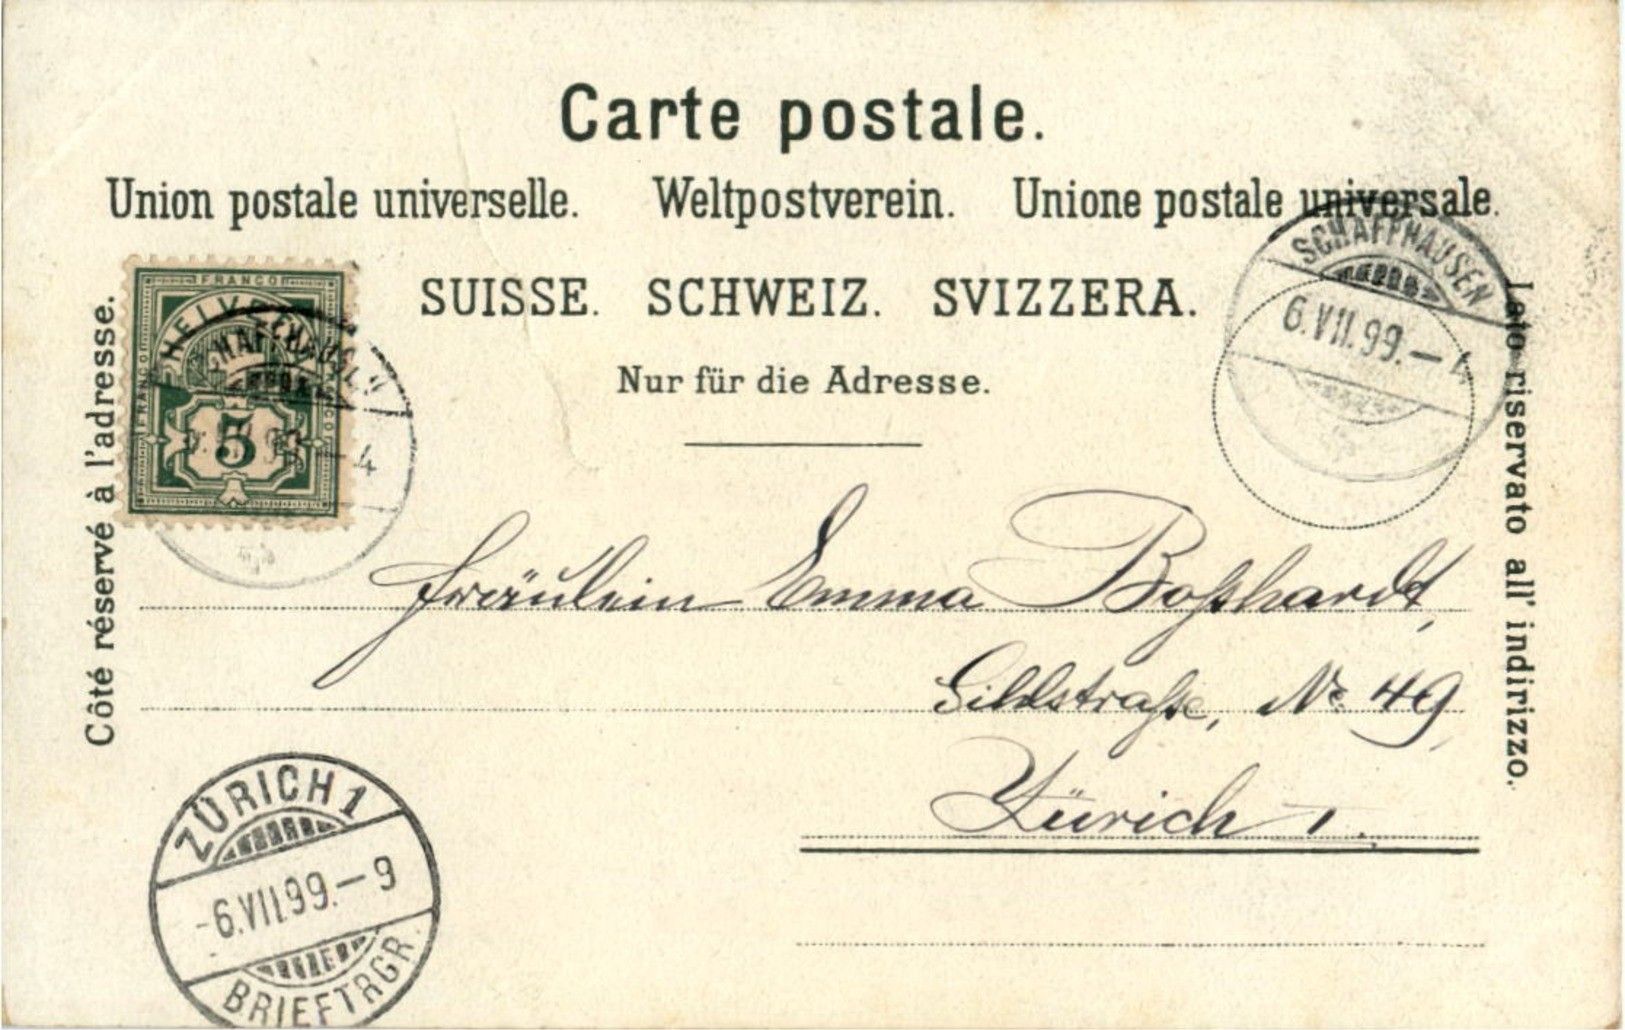 Carte postale.
Union postale universelle. Weltpostverein. Unione postale universale.
SUISSE. SCHWEIZ. SVIZZERA.
Nur für die Adresse.
Côté réservé à l'adresse.
Lato riservato all' indirizzo.
FRANCO
FRANCO
5
SCHAFFHAUSEN
6.VII.99.–4
SCHAFFHAUSEN
–4
Fräulein Emma Boßhardt,
Sihlstraße, No 49,
Zürich I.
ZÜRICH 1
-6.VII.99.–9
BRIEFTRGR.